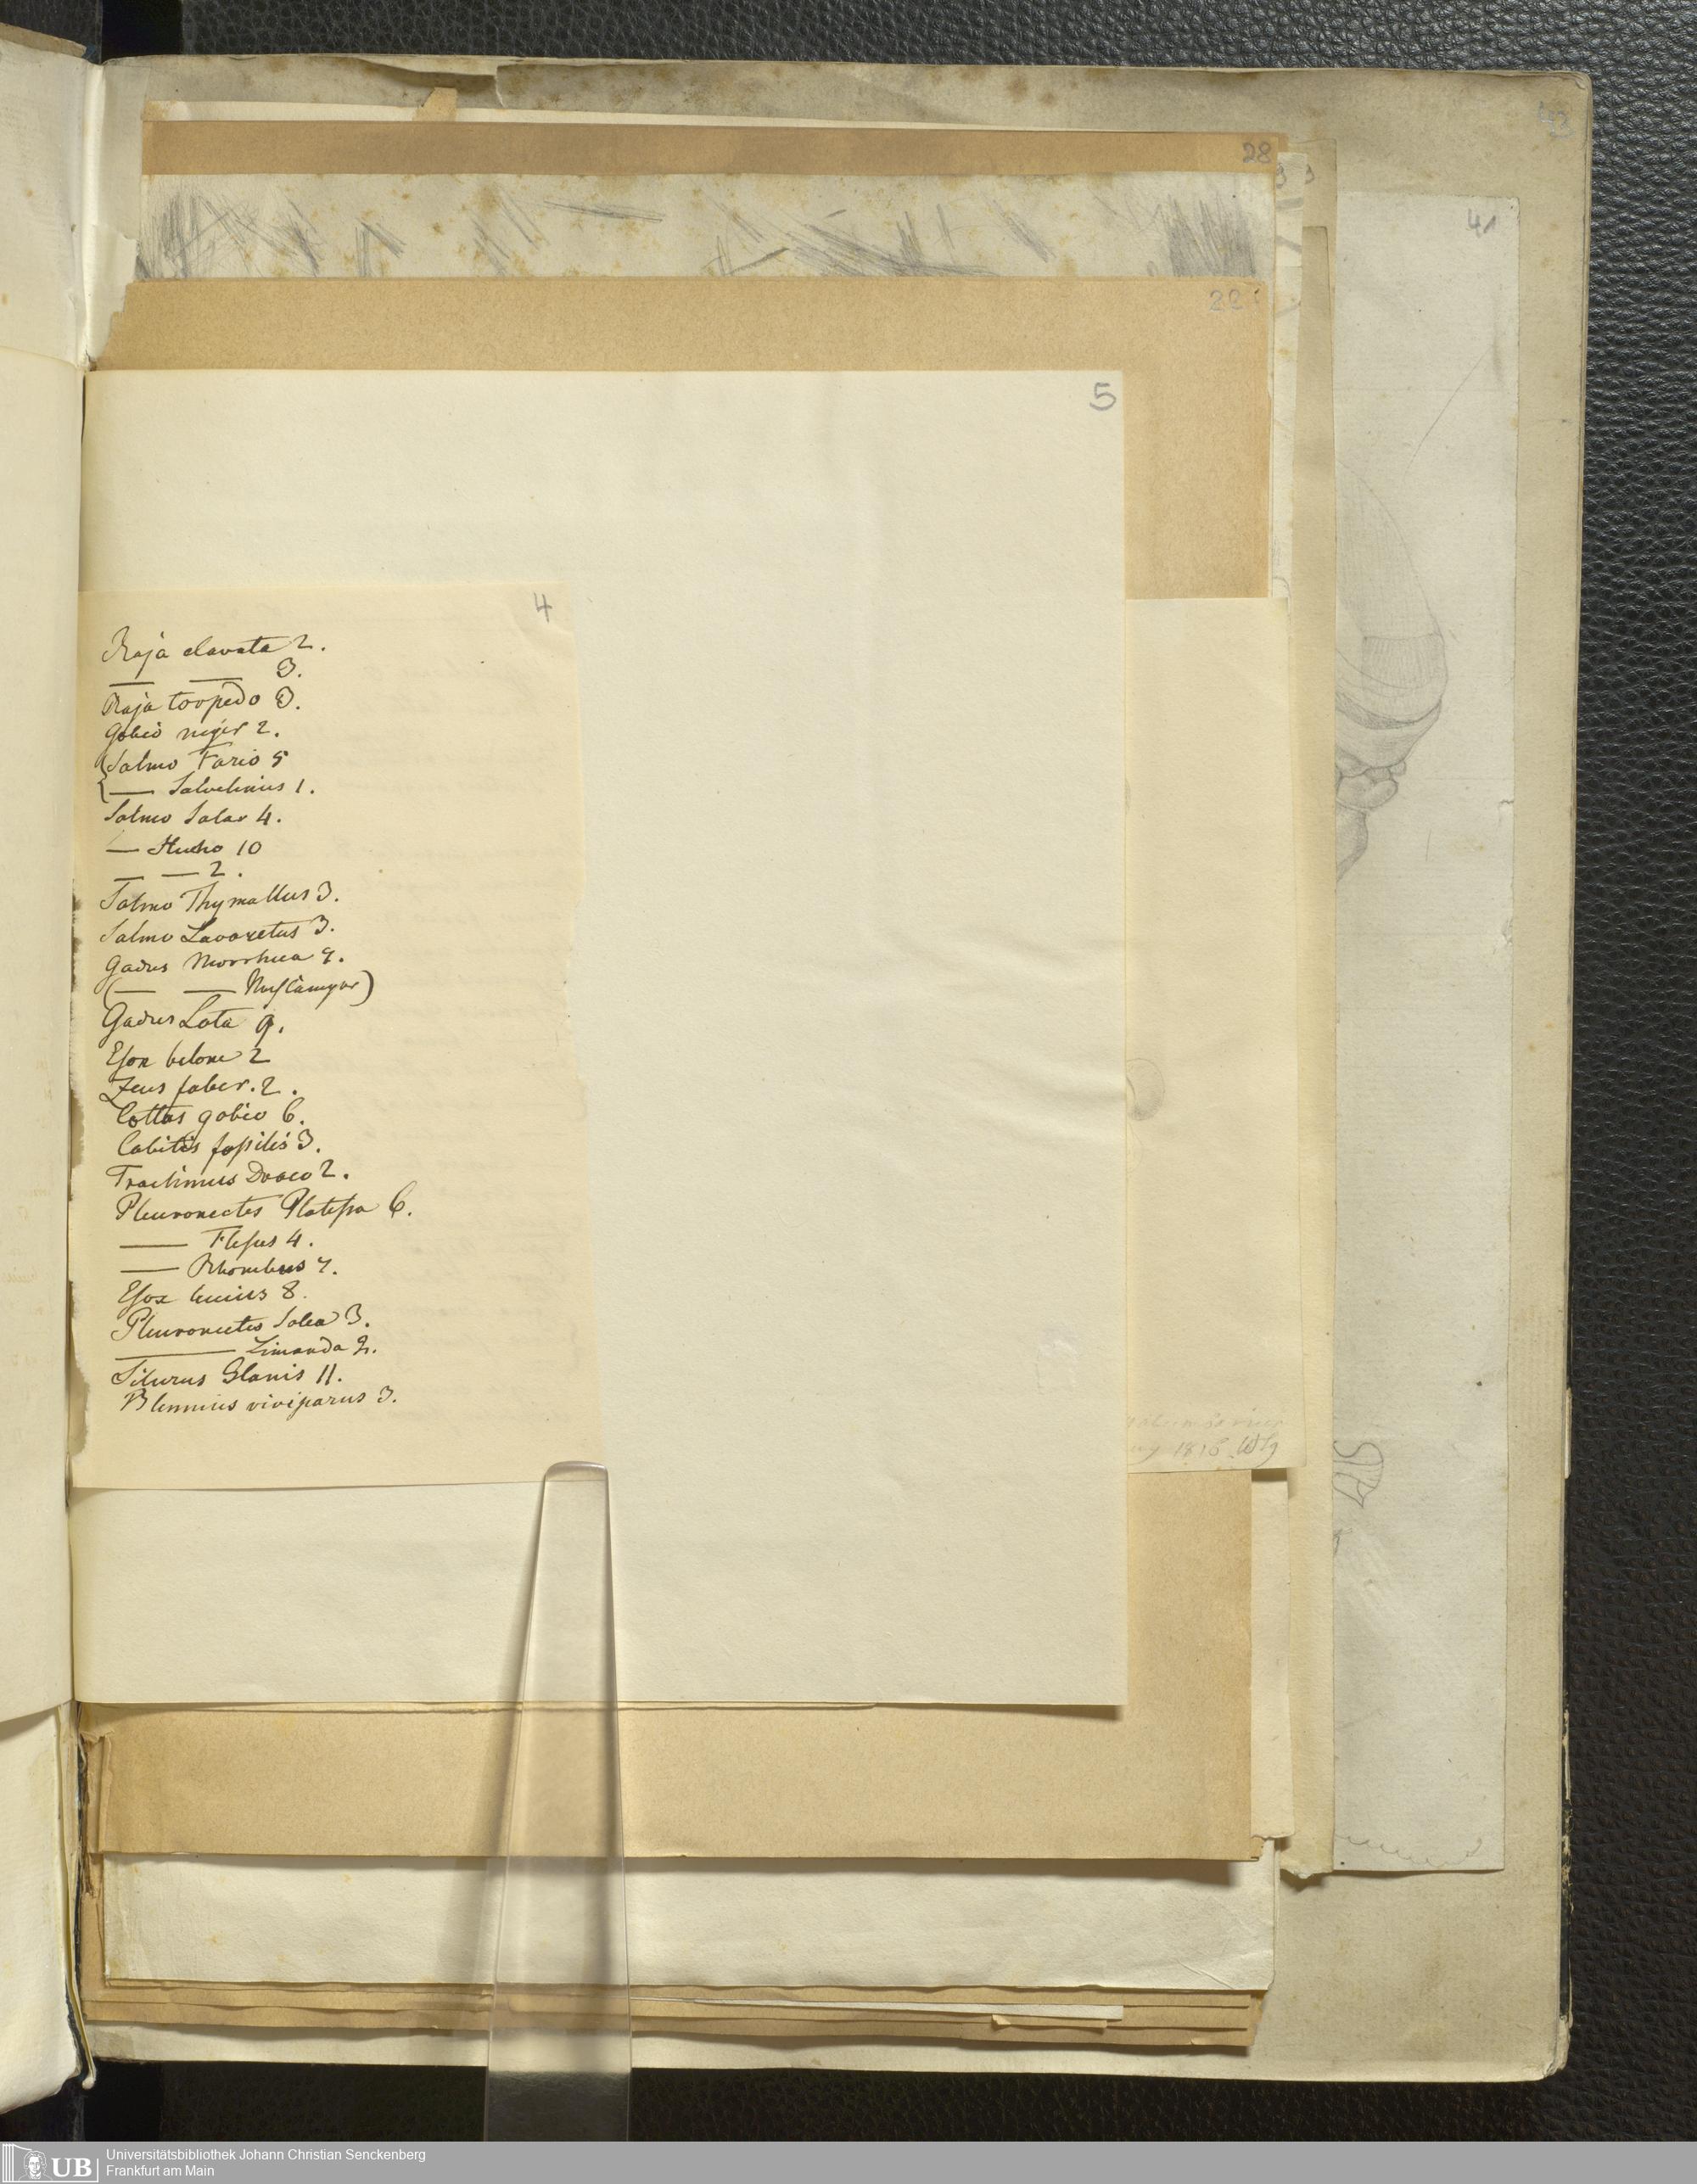 43
28
41
22
5
4
Raja clavata 2.
— — 3.
Raja torpedo 3.
Gobio niger 2.
Salmo Fario 5
— Salvelinus 1.
Salmo Salar 4.
— Hucho 10
— — 2.
Salmo Thymallus 3.
Salmo Lavaretus 3.
Gadus Morrhua 9.
(— —
Gadus Lota 9.
Esox belone 2
Zeus faber. 2.
Cottus gobio 6.
Cobitis fossilis 3.
Trachinus Draco 2.
Pleuronectes Platessa 6.
— Flesus 4.
— Rhombus 7.
Esox lucius 8.
Pleuronectes Solea 3.
— Limanda 2.
Silurus Glanis 11.
Blennius viviparus 3.
UB Universitätsbibliothek Johann Christian Senckenberg
Frankfurt am Main